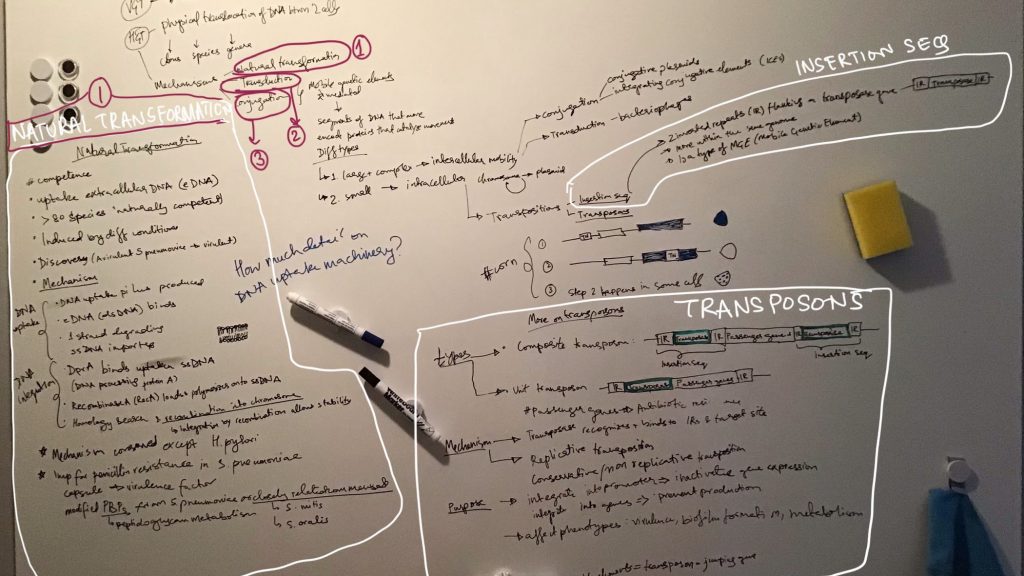 VGT
HGT → physical translocation of DNA btwn 2 cells
species genera
Mechanisms
Natural transformation 1
Transduction 2
Conjugation 3
Mobile genetic elements
segments of DNA that move
encode proteins that catalyze movement
Diff types
1. large + complex → intercellular mobility
2. small → intracellular
chromosome → plasmid
→ Conjugation
conjugative plasmids
integrating conjugative elements (ICEs)
→ Transduction - bacteriophages
→ Transpositions
Insertion seq
Transposons
INSERTION SEQ
IR Transposase IR
2 inverted repeats (IR) flanking a transposase gene
move within the same genome
is a type of MGE (Mobile Genetic Element)
#corn
1
2
Tn
3 Step 2 happens in some cells
1
NATURAL TRANSFORMATION
Natural Transformation
# competence
• uptake extracellular DNA (eDNA)
• > 80 species 'naturally competent'
• Induced by diff conditions
• Discovery (Avirulent S pneumoniae → virulent)
• Mechanism
DNA uptake
• DNA uptake pilus produced
• eDNA (dsDNA) binds
• 1 strand degrading
ssDNA imported
DNA integration
• DprA binds uptaken ssDNA
(DNA processing protein A)
• Recombinase (RecA) loades polymerises onto ssDNA
• Homology search → recombination into chromosome
↳ Integration by recombination allows stability
* Mechanism conserved except H. pylori
* Imp for penicillin resistance in S. pneumoniae
capsule → virulence factor
modified PBPs from S pneumoniae or closely related commensals
↳ Peptidoglycan metabolism
↳ S. mitis
↳ S. oralis
How much detail on
DNA uptake machinery?
TRANSPOSONS
More on transposons
types → • Composite transposon :
IR Transposase IR Passenger gene IR Transposase IR
insertion seq
insertion seq
→ Unit transposon
IR Transposase Passenger gene IR
# Passenger genes → Antibiotic
Mechanism → Transposase recognizes + binds to IRs & target site
→ Replicative transposition
Conservative/non replicative transposition
Purpose → integrate into promoter ⇒ inactivate gene expression
integrate into genes ⇒ prevent production
→ affect phenotypes : virulence, biofilm formation, metabolism
elements = transposon = jumping gene